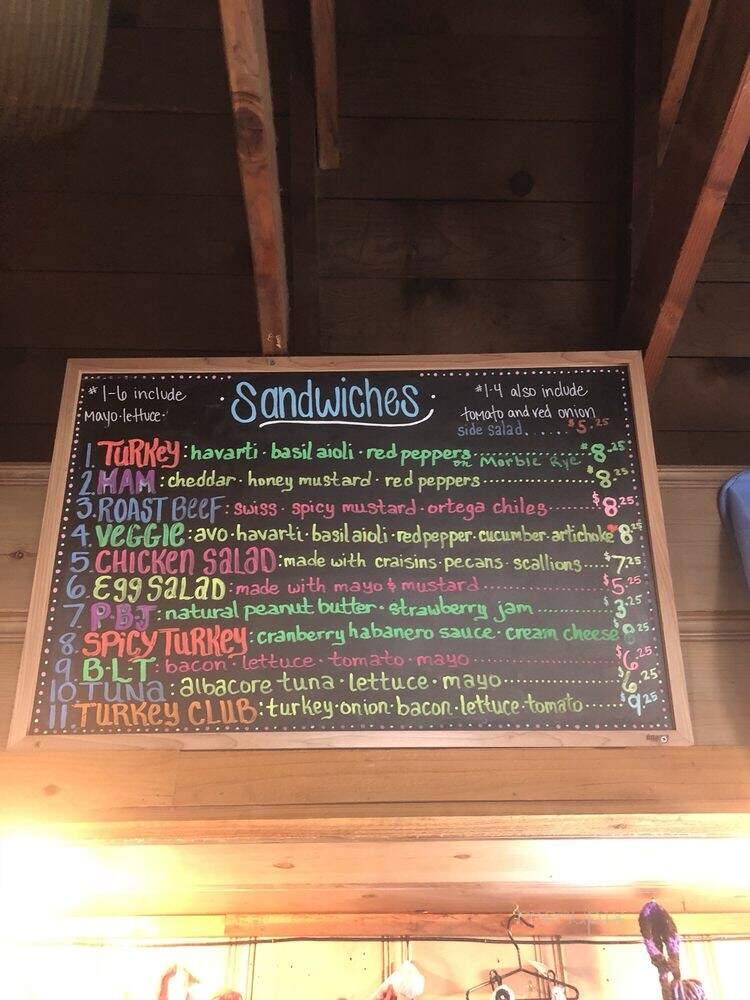 Sandwiches
#1-6 include
Mayo·lettuce·
#1-4 also include
tomato and red onion
side salad......$5.25
1. TURKEY: havarti · basil aioli · red peppers........$8.25
on Marble Rye
2. HAM: cheddar · honey mustard · red peppers........$8.25
3. ROAST BEEF: swiss · spicy mustard · ortega chiles........$8.25
4. VEGGIE: avo · havarti · basil aioli · red pepper · cucumber · artichoke $8.25
5. CHICKEN SALAD: made with craisins · pecans · scallions....$7.25
6. EGG SALAD: made with mayo & mustard........$5.25
7. P·B·J: natural peanut butter · strawberry jam........$3.25
8. SPICY TURKEY: cranberry habanero sauce · cream cheese $8.25
9. B·L·T: bacon · lettuce · tomato · mayo........$6.25
10 TUNA: albacore tuna · lettuce · mayo........$6.25
11. TURKEY CLUB: turkey · onion · bacon · lettuce · tomato......$9.25